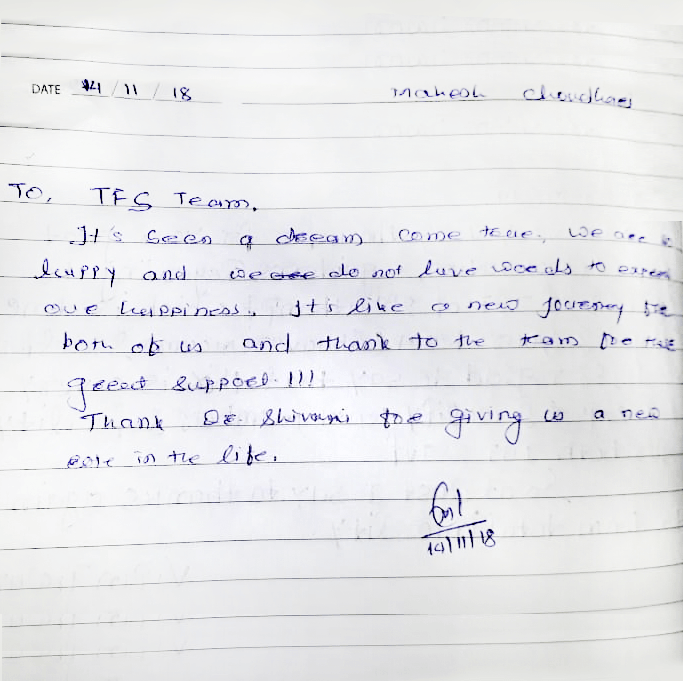 DATE 14/11/18 Mahesh Choudhary
To, TFS Team.
It's been a dream come true. We are
happy and we do not have words to express
our happiness. It's like a new journey for
both of us and thank to the team for the
great support.!!!
Thank Dr. Shivani for giving us a new
role in the life.
14/11/18